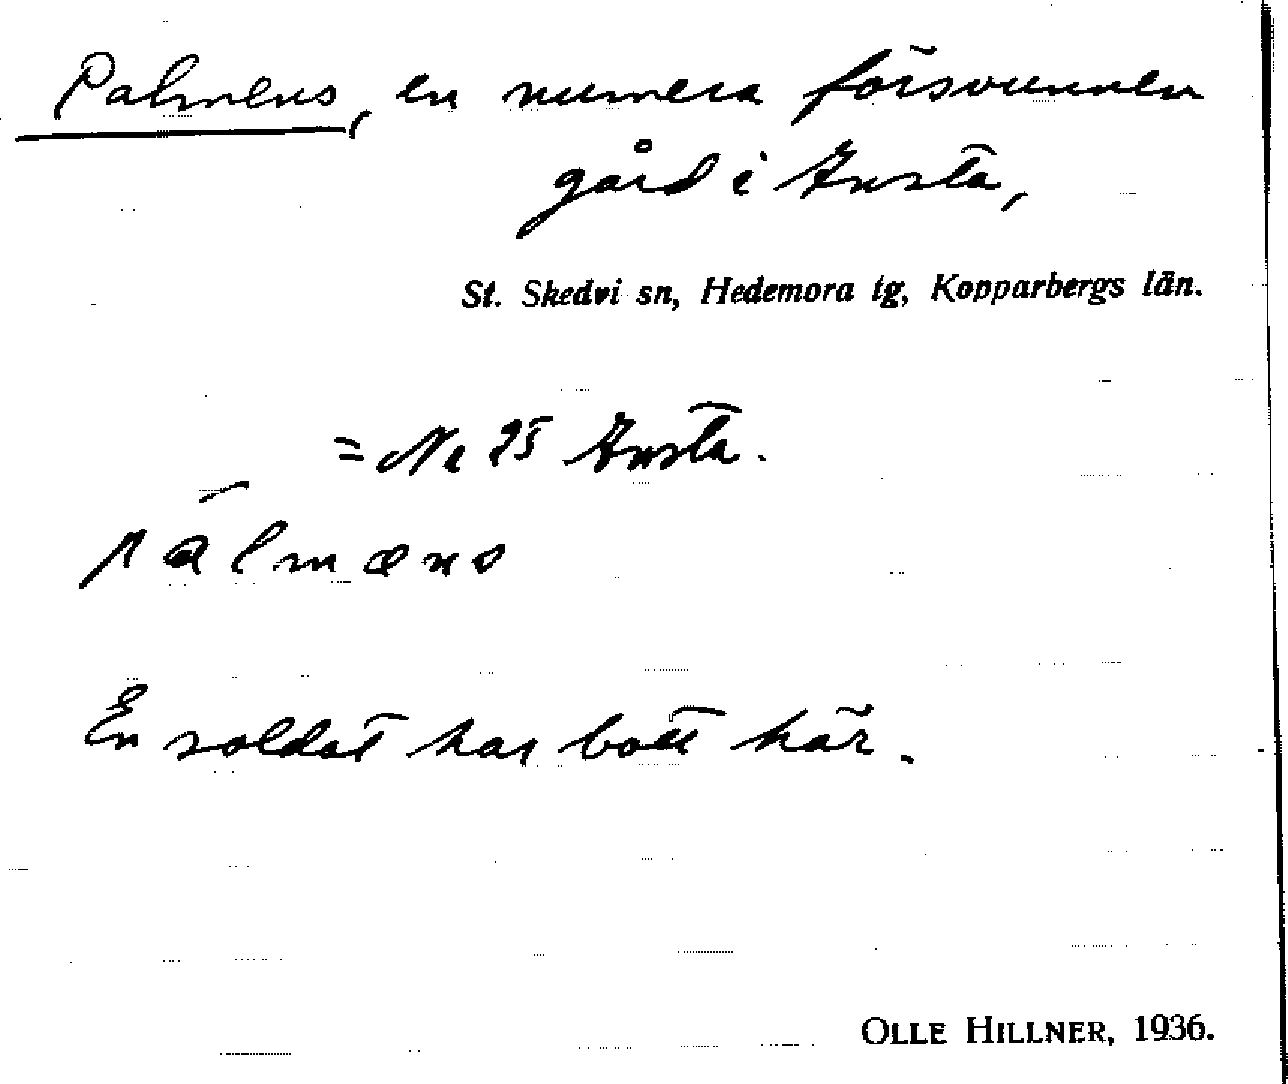 Palmens, en numera försvunnen
gård i Ansta,
St. Skedvi sn, Hedemora tg, Kopparbergs län.
= Nr 25 Ansta.
pálmæns
En soldat har bott här.
OLLE HILLNER, 1936.